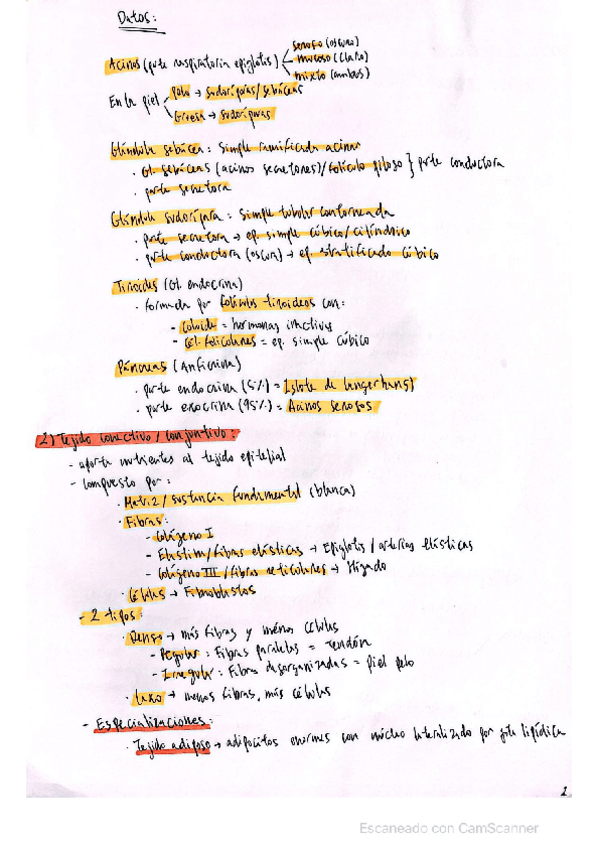 Datos:
Acinos (parte respiratoria epiglotis)
seroso (oscuro)
mucoso (claro)
mixto (ambos)
En la piel
Pelo → sudoríparas/sebáceas
Gruesa → sudoríparas
Glándula sebácea: simple ramificada acinar
· Gl. sebáceas (acinos secretores)/folículo piloso } parte conductora
· parte secretora
Glándula sudorípara: simple tubular contorneada
· parte secretora → ep. simple cúbico/cilíndrico
· parte conductora (oscura) → ep. estratificado cúbico
Tiroides (Gl. endocrina)
· formada por folículos tiroideos con:
- coloide = hormonas inactivas
- cél. foliculares = ep. simple cúbico
Páncreas (Anficrina)
· parte endocrina (5%) = Islote de langerhans)
· parte exocrina (95%) = Acinos serosos
2) Tejido conectivo/conjuntivo:
- aporta nutrientes al tejido epitelial
- compuesto por:
· Matriz/sustancia fundamental (blanca)
· Fibras:
- Colágeno I
- Elastina/fibras elásticas → Epiglotis/arterias elásticas
- Colágeno III/fibras reticulares → Hígado
· Células → Fibroblastos
- 2 tipos:
· Denso → más fibras y menos células
- Regular: Fibras paralelas = Tendón
- Irregular: Fibras desorganizadas = piel pelo
· Laxo → menos fibras, más células
- Especializaciones:
· Tejido adiposo → adipocitos enormes con núcleo lateralizado por gota lipídica
1
Escaneado con CamScanner